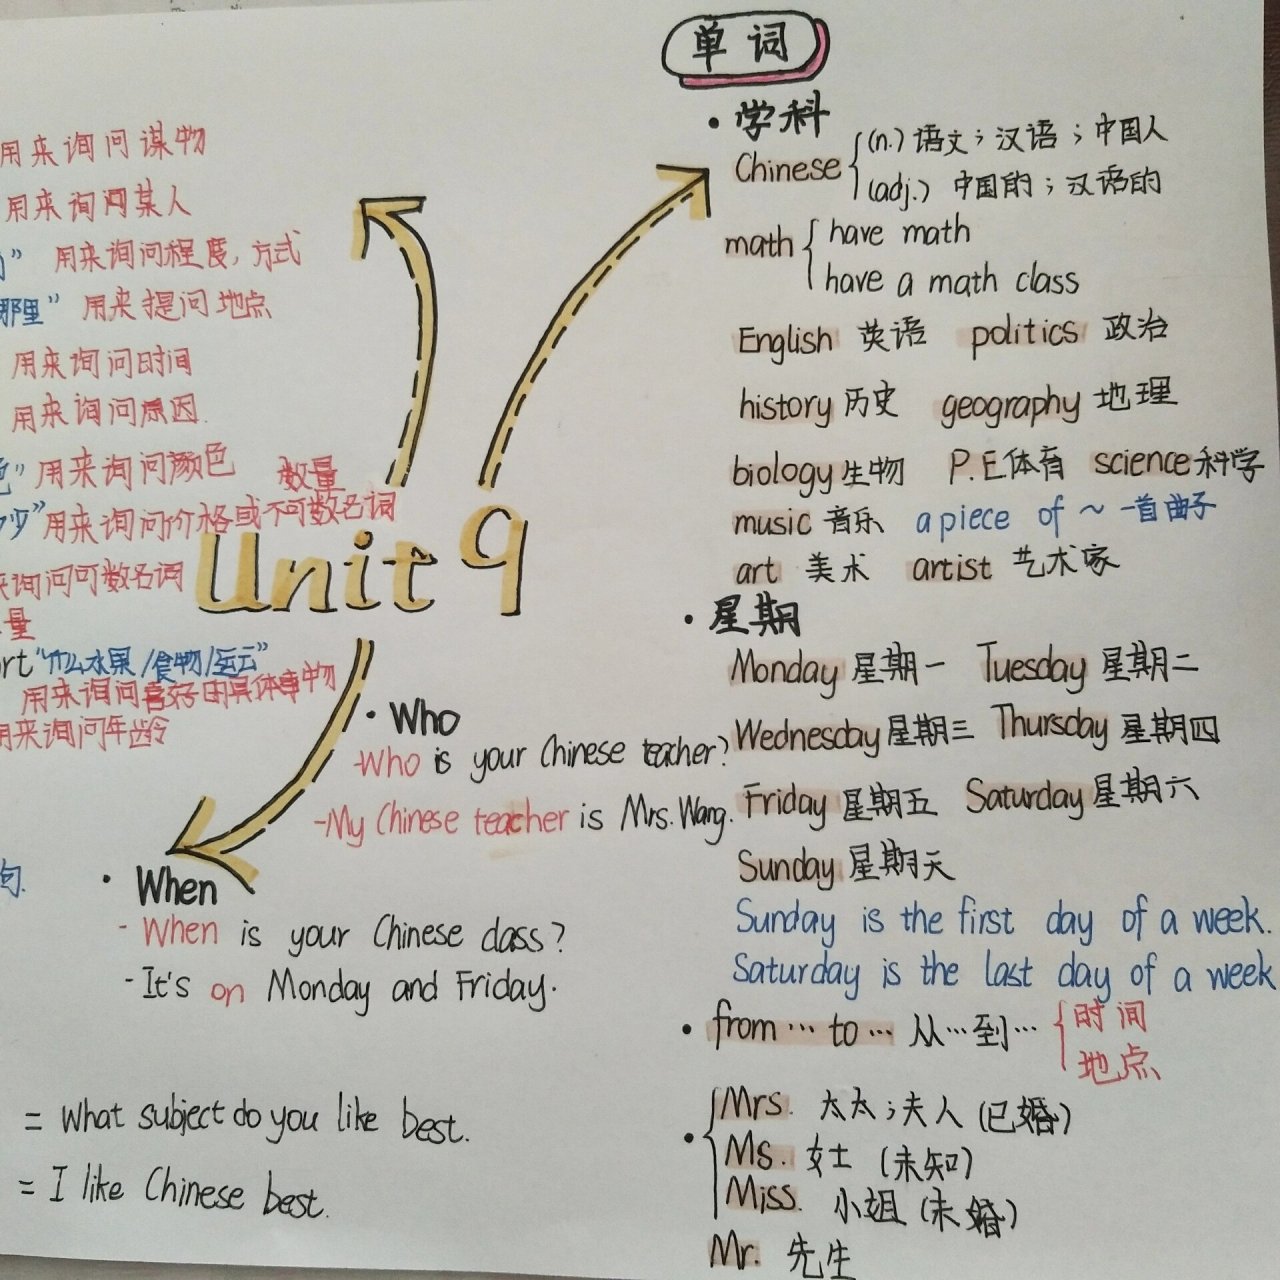 单词
• 学科
Chinese {(n.) 语文；汉语；中国人
(adj.) 中国的；汉语的
math { have math
have a math class
English 英语 politics 政治
history 历史 geography 地理
biology 生物 P.E 体育 science 科学
music 音乐 a piece of ~ 一首曲子
art 美术 artist 艺术家
• 星期
Monday 星期一 Tuesday 星期二
Wednesday 星期三 Thursday 星期四
Friday 星期五 Saturday 星期六
Sunday 星期天
Sunday is the first day of a week.
Saturday is the last day of a week
• from … to … 从…到… {时间
地点
• { Mrs. 太太；夫人 (已婚)
Ms. 女士 (未知)
Miss. 小姐 (未婚)
Mr. 先生
用来询问谋物
用来询问某人
” 用来询问程度，方式
那里” 用来提问地点
用来询问时间
用来询问原因.
色” 用来询问颜色
数量
少” 用来询问价格或不可数名词
来询问可数名词
量
ort “什么水果/食物/运动”
用来询问喜好的具体事物
用来询问年龄
Unit 9
• Who
-Who is your Chinese teacher?
-My Chinese teacher is Mrs. Wang.
句.
• When
- When is your Chinese class?
- It's on Monday and Friday.
= What subject do you like best.
= I like Chinese best.